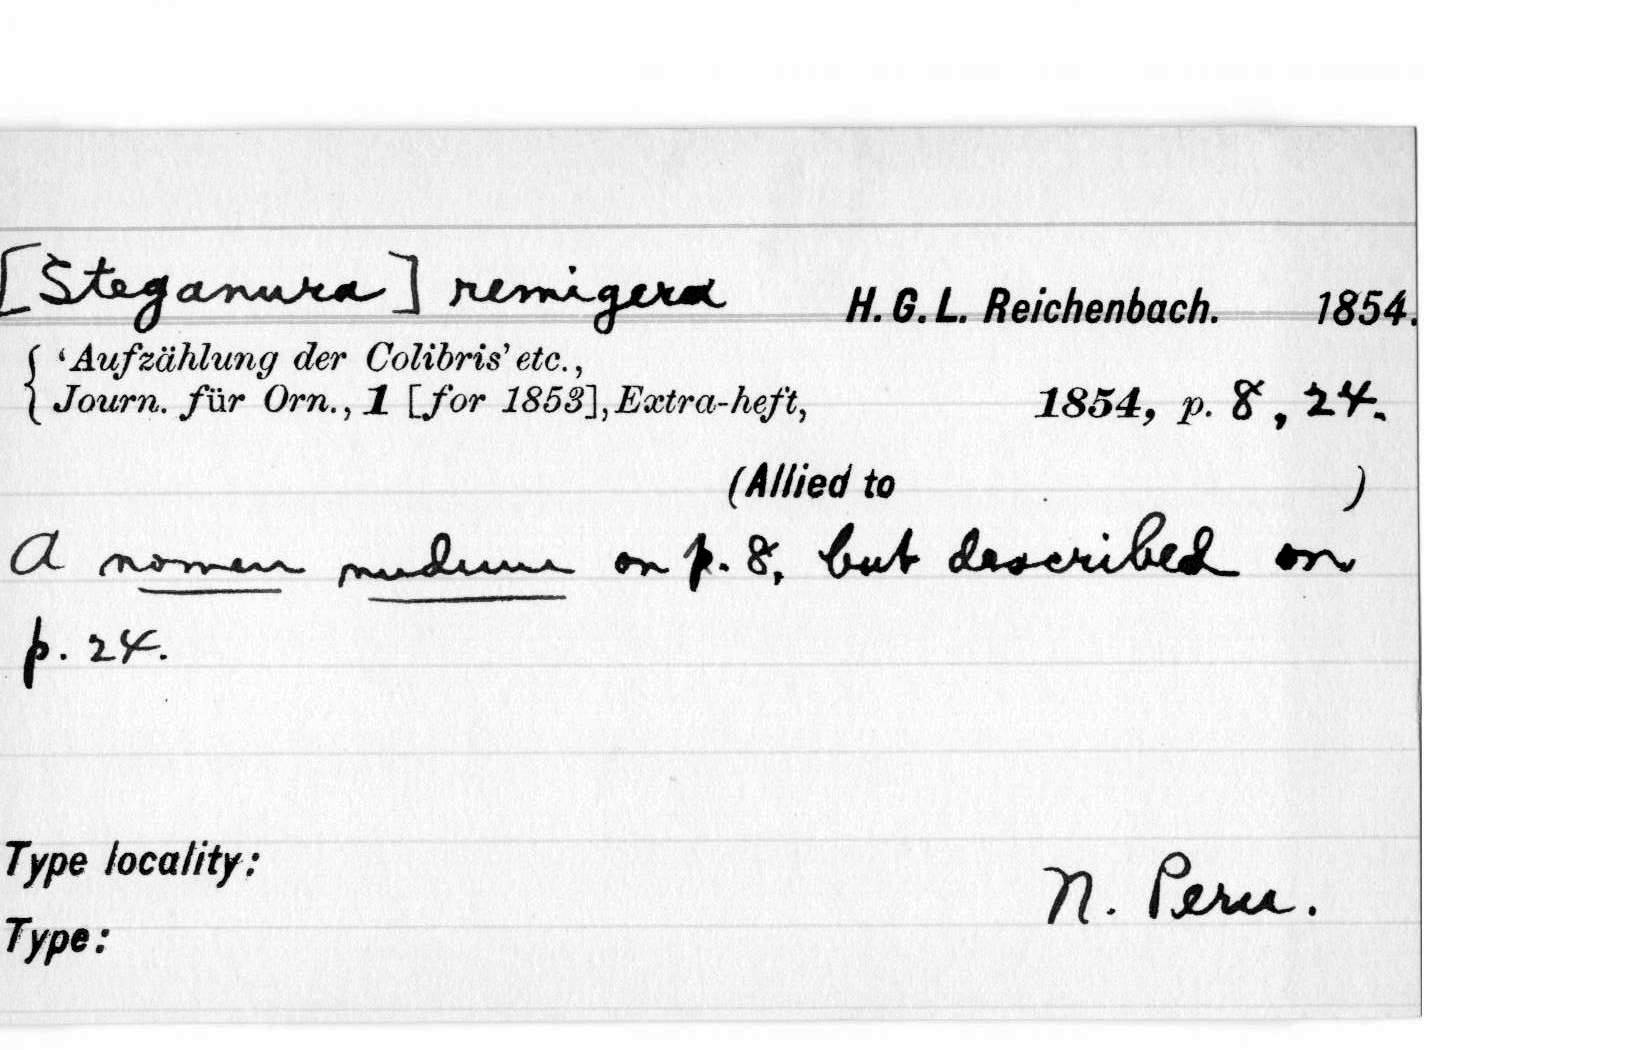 [Steganura] remigera H. G. L. Reichenbach. 1854.
'Aufzählung der Colibris' etc.,
Journ. für Orn., 1 [for 1853], Extra-heft, 1854, p. 8, 24.
(Allied to )
A nomen nudum on p. 8, but described on
p. 24.
Type locality:
N. Peru.
Type: